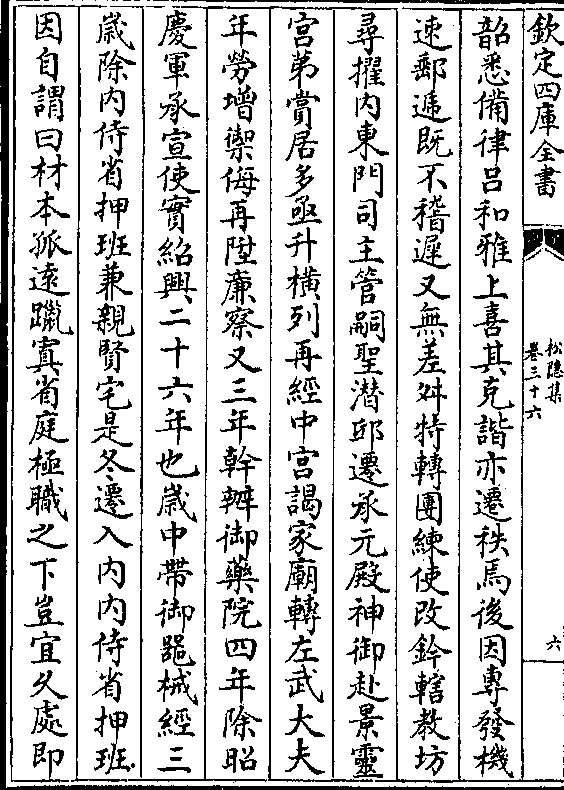 欽定四庫全書
松隱集
卷三十六
六
韶悉備律呂和雅上喜其克諧亦遷秩焉後因專發機
速郵逓既不稽遲又無差舛特轉團練使改鈐轄教坊
尋擢内東門司主管嗣聖潜邸遷承元殿神御赴景靈
宫第賞居多亟升横列再經中宫謁家廟轉左武大夫
年勞增禦侮再陞㢘察又三年幹辦御藥院四年除昭
慶軍承宣使實紹興二十六年也嵗中帶御噐械經三
嵗除内侍省押班兼親賢宅是冬遷入内内侍省押班
因自謂曰材本孤逺躐寘省庭極職之下豈宜乆處即